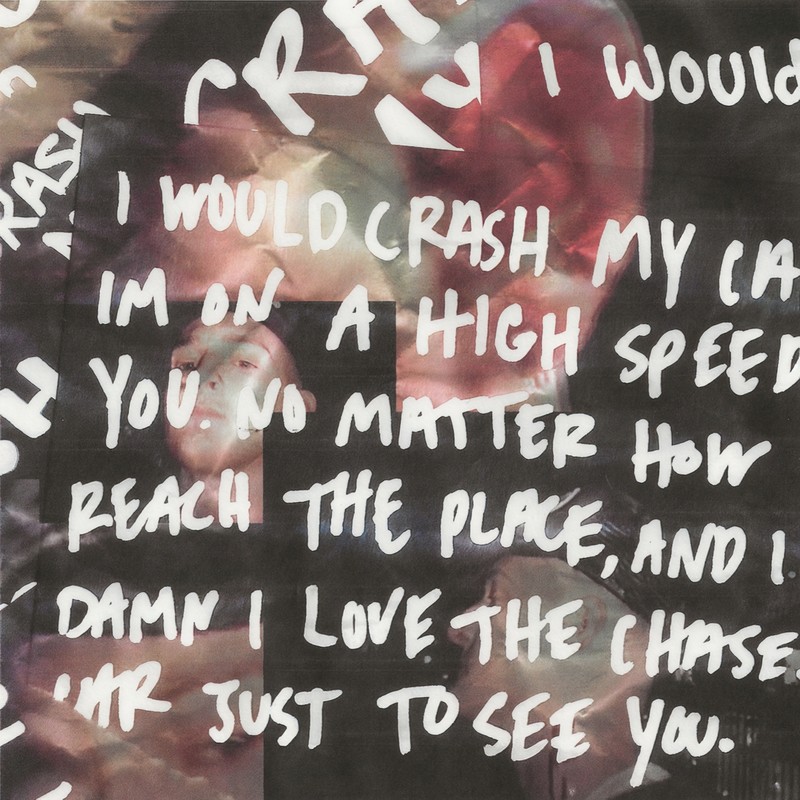 I WOULD
RASH
I WOULD CRASH MY CA
IM ON A HIGH SPEED
YOU. NO MATTER HOW
REACH THE PLACE, AND I
DAMN I LOVE THE CHASE.
CAR JUST TO SEE YOU.